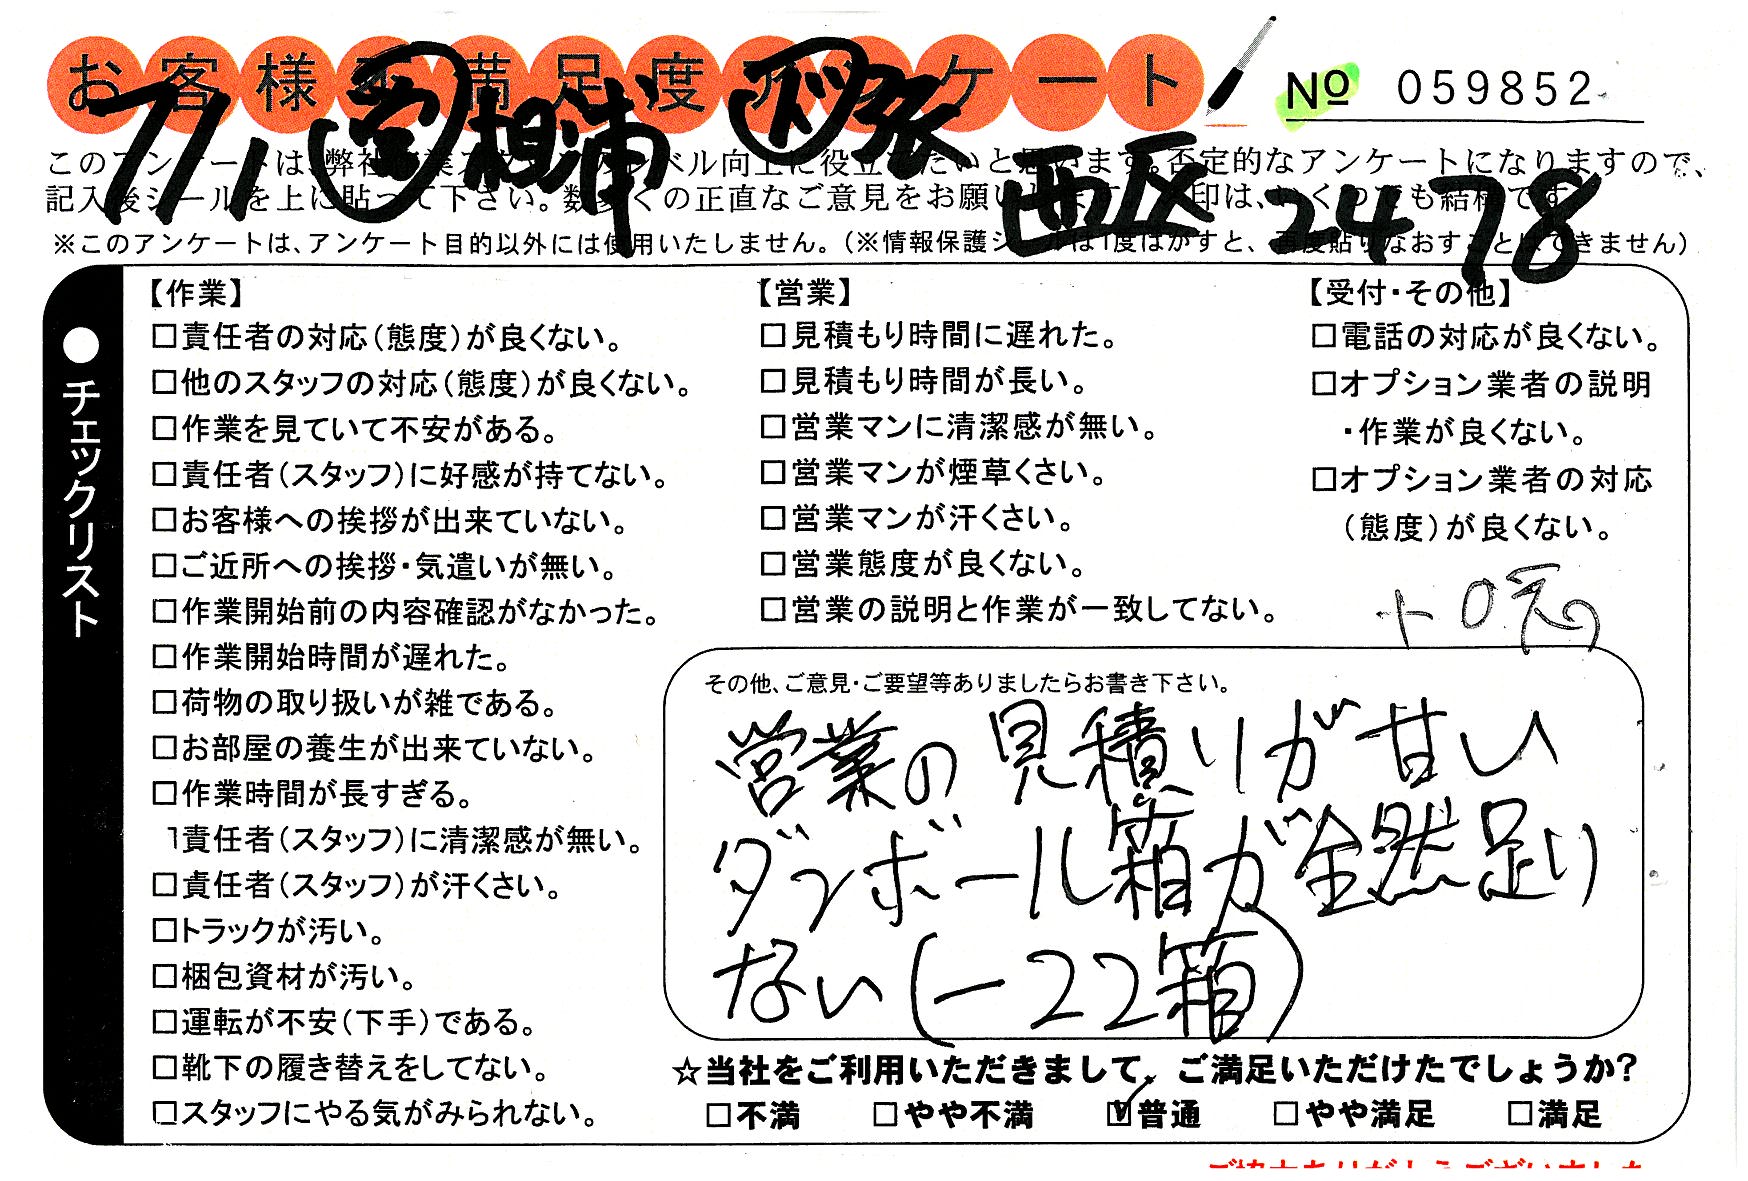 お客様 満足度アンケート
№ 059852
7/1 営 相浦 下 張 西区 2478
このアンケートは、弊社 業 ベル向上に役立てたいと思います。否定的なアンケートになりますので、
記入後シールを上に貼って下さい。数多くの正直なご意見をお願いします 印は、いくつでも結構です
※このアンケートは、アンケート目的以外には使用いたしません。(※情報保護シールは1度はがすと、再度貼りなおすことはできません)
●チェックリスト
【作業】
□責任者の対応(態度)が良くない。
□他のスタッフの対応(態度)が良くない。
□作業を見ていて不安がある。
□責任者(スタッフ)に好感が持てない。
□お客様への挨拶が出来ていない。
□ご近所への挨拶・気遣いが無い。
□作業開始前の内容確認がなかった。
□作業開始時間が遅れた。
□荷物の取り扱いが雑である。
□お部屋の養生が出来ていない。
□作業時間が長すぎる。
責任者(スタッフ)に清潔感が無い。
□責任者(スタッフ)が汗くさい。
□トラックが汚い。
□梱包資材が汚い。
□運転が不安(下手)である。
□靴下の履き替えをしてない。
□スタッフにやる気がみられない。
【営業】
□見積もり時間に遅れた。
□見積もり時間が長い。
□営業マンに清潔感が無い。
□営業マンが煙草くさい。
□営業マンが汗くさい。
□営業態度が良くない。
□営業の説明と作業が一致してない。
【受付・その他】
□電話の対応が良くない。
□オプション業者の説明
・作業が良くない。
□オプション業者の対応
(態度)が良くない。
その他、ご意見・ご要望等ありましたらお書き下さい。
営業の見積りが甘い
ダンボール箱が全然足り
ない(-22箱)
☆当社をご利用いただきまして、ご満足いただけたでしょうか?
□不満 □やや不満 ☑普通 □やや満足 □満足
ご協力ありがとうございました